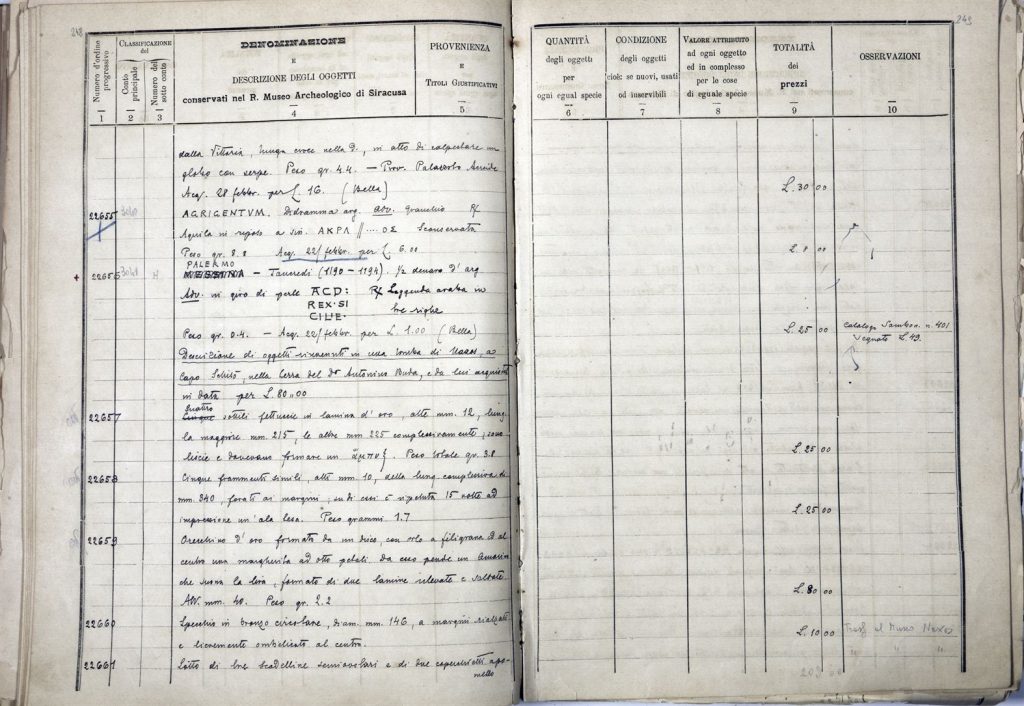 248
Numero d'ordine progressivo
CLASSIFICAZIONE del
Conto principale
Numero del sotto conto
DENOMINAZIONE
E
DESCRIZIONE DEGLI OGGETTI
conservati nel R. Museo Archeologico di Siracusa
PROVENIENZA
E
TITOLI GIUSTIFICATIVI
1 2 3 4 5
dalla Vittoria, lunga croce nella d., in atto di calpestare un
globo con serpe. Peso gr. 4.4. — Prov. Palazzolo Acreide
Acq. 28 febbr. per £. 16. (Bella)
22655 AGRIGENTVM. Didramma arg. Adv. Granchio R/
Aquila in riposo a sin. ΑΚΡΑ // ....ΟΣ Sconservata
Peso gr. 8.8 Acq. 22/febbr. per £ 6.00
PALERMO
22656 MESSINA — Tancredi (1190 – 1194). 1/2 denaro d'arg
Adv. in giro di perle ACD: R/ Leggenda araba in
REX·SI tre righe
CILIE·
Peso gr. 0.4. — Acq. 22/febbr. per L. 1.00 (Bella)
Descrizione di oggetti rinvenuti in una tomba di Naxos, a
Capo Schisò, nella terra del Dr Antonino Buda, e da lui acquistati
in data per L. 80,00
quattro
22657 Cinque sottili fettuccie in lamina d'oro, alte mm. 12, lung.
la maggiore mm. 215, le altre mm 225 complessivamente, sono
liscie e dovevano formare un ἄμπυξ. Peso totale gr. 3.8
22658 Cinque frammenti simili, alti mm. 10, della lung. complessiva di
mm. 340, forati ai margini, su di essi è ripetuta 15 volte ad
impressione un'ala tesa. Peso grammi 1.7
22659 Orecchino d'oro formato da un disco, con orlo a filigrana ed al
centro una margherita ad otto petali. Da esso pende un Amorino
che suona la lira, formato di due lamine rilevate e saldate.
Alt. mm. 40. Peso gr. 2.2
22660 Specchio in bronzo circolare, diam. mm. 146, a margini rialzati
e lievemente ombelicato al centro.
22661 Lotto di tre scodelline semiovolari e di due coperchietti a po-
mello
249
QUANTITÀ
degli oggetti
per
ogni egual specie
6
CONDIZIONE
degli oggetti
cioè: se nuovi, usati
od inservibili
7
VALORE ATTRIBUITO
ad ogni oggetto
ed in complesso
per le cose
di eguale specie
8
TOTALITÀ
dei
prezzi
9
OSSERVAZIONI
10
L. 30 00
L. 00
L. 25 00 Catalogo Sambon n. 401
L. 49.
L. 25 00
L. 25 00
L. 80 00
L. 10 00 Trasf. al Museo Naxos
" " "
203 00